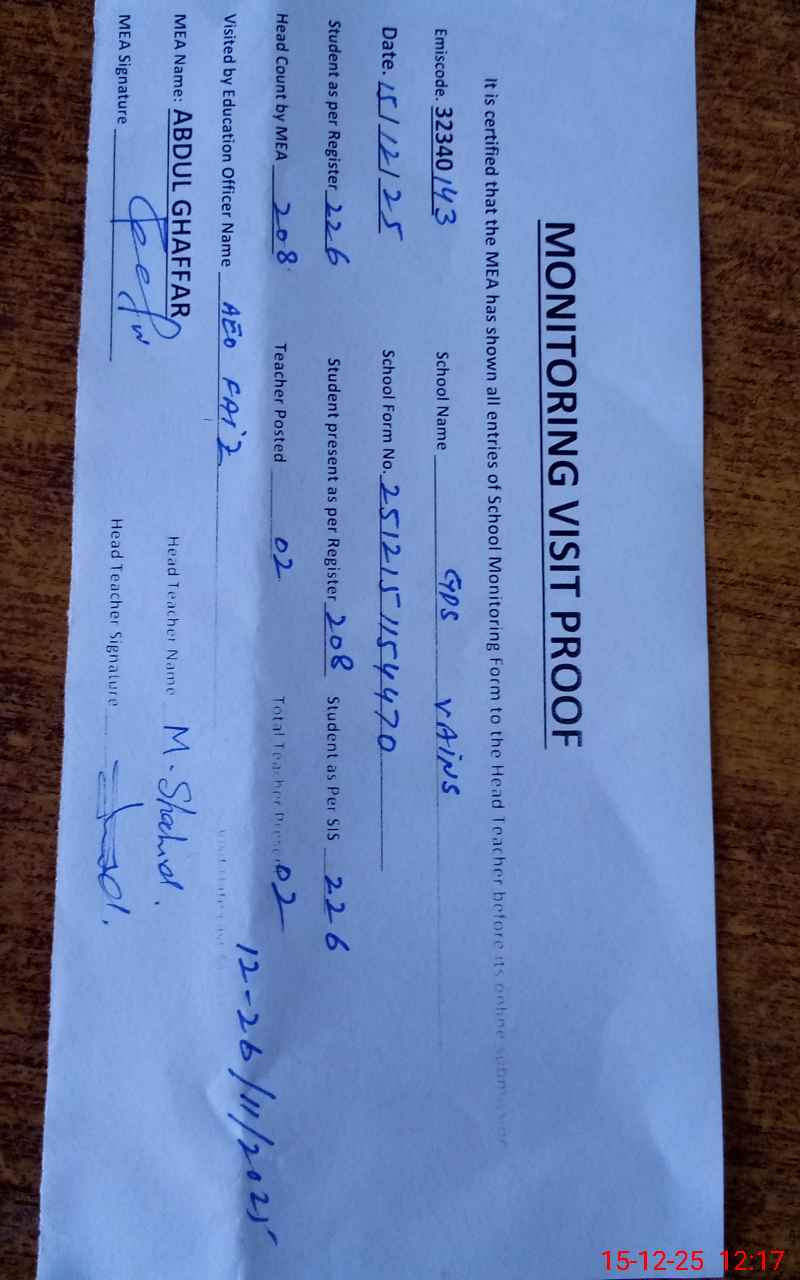 MONITORING VISIT PROOF
It is certified that the MEA has shown all entries of School Monitoring Form to the Head Teacher before its online submission
Emiscode. 32340143 School Name GPS VAINS
Date. 15/12/25 School Form No. 2512151154470
Student as per Register 226 Student present as per Register 208 Student as Per SIS 226
Head Count by MEA 208 Teacher Posted 02 Total Teacher Present 02
Visited by Education Officer Name AEO FAiZ 12-26/11/2025
MEA Name: ABDUL GHAFFAR Head Teacher Name M. Shahid.
MEA Signature Head Teacher Signature
15-12-25 12:17